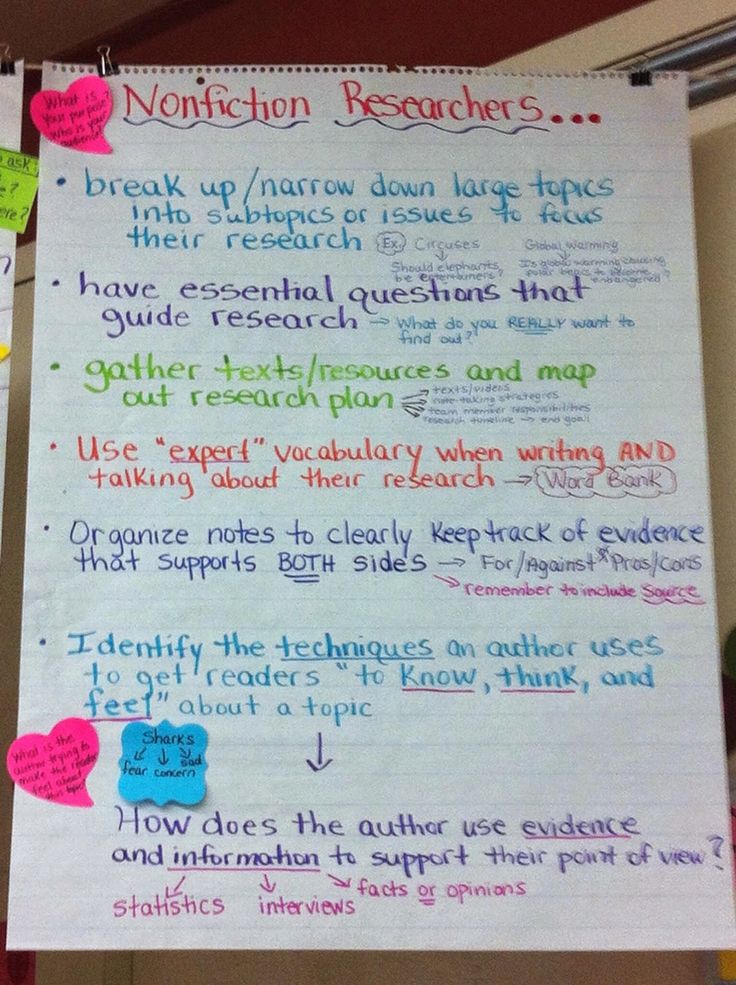 What is
your purpose?
Who is your
audience?
Nonfiction Researchers...
ask
e?
ere?
?
• break up/narrow down large topics
into subtopics or issues to focus
their research Ex. Circuses Global Warming
Should elephants be entertainers?
Is global warming causing polar bears to become endangered?
• have essential questions that
guide research → What do you REALLY want to
find out?
• gather texts/resources and map
out research plan
texts/videos
note-taking strategies
team member responsibilities
research timeline → end goal
• Use "expert" vocabulary when writing AND
talking about their research → Word Bank
• Organize notes to clearly keep track of evidence
that supports BOTH sides → For/Against * Pros/Cons
→ remember to include source
• Identify the techniques an author uses
to get readers "to know, think, and
feel" about a topic
↓
What is the
author trying to
make the reader
feel about
this topic?
Sharks
fear concern sad
How does the author use evidence
and information to support their point of view?
statistics interviews facts or opinions